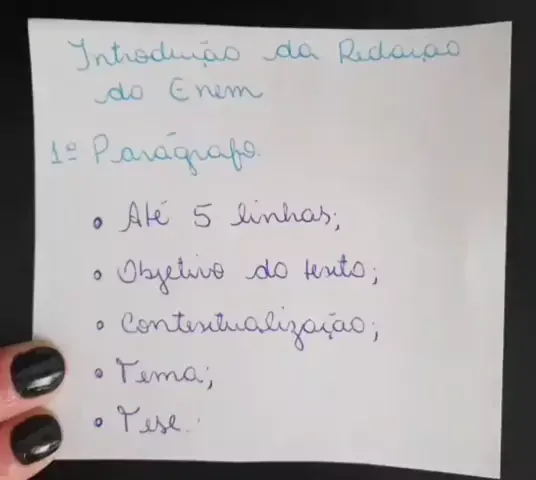 Introdução da Redação
do Enem
1º Parágrafo.
• Até 5 linhas;
• Objetivo do texto;
• Contextualização;
• Tema;
• Tese.